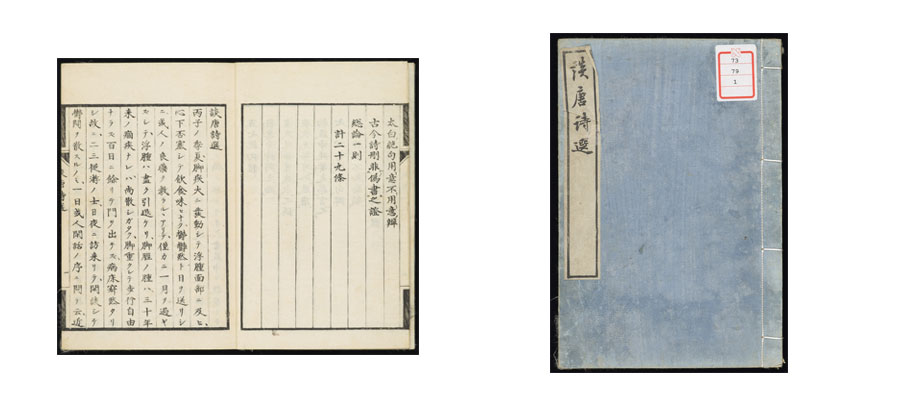 太白絶句用意不用意辨
古今詩刪非偽書之證
総論一則
計二十九條
談唐詩選
丙子ノ季夏脚疾大ニ発動シテ浮腫面部ニ及ヒ
心下否塞シテ飲食味ヒナク鬱鬱黙ト日ヲ送リシ
ニ或人ノ良薬ノ救ヒアリテ僅カニ一月ヲ過ギ
スシテ浮腫ハ盡ク引退ケリ脚腫ノ腫ハ三十年
来ノ痼疾ナレハ尚散シガタク脚重クシテ歩行自由
ナラス百日ニ餘リテ門ヲ出ラス病床寂黙タリ
シ故ニ二三挺ノ士日夜ニ訪来リテ閑談シテ
鬱悶ヲ散スルノミ一日或人閑話ノ序ニ問テ云近
談唐詩選
73
79
1